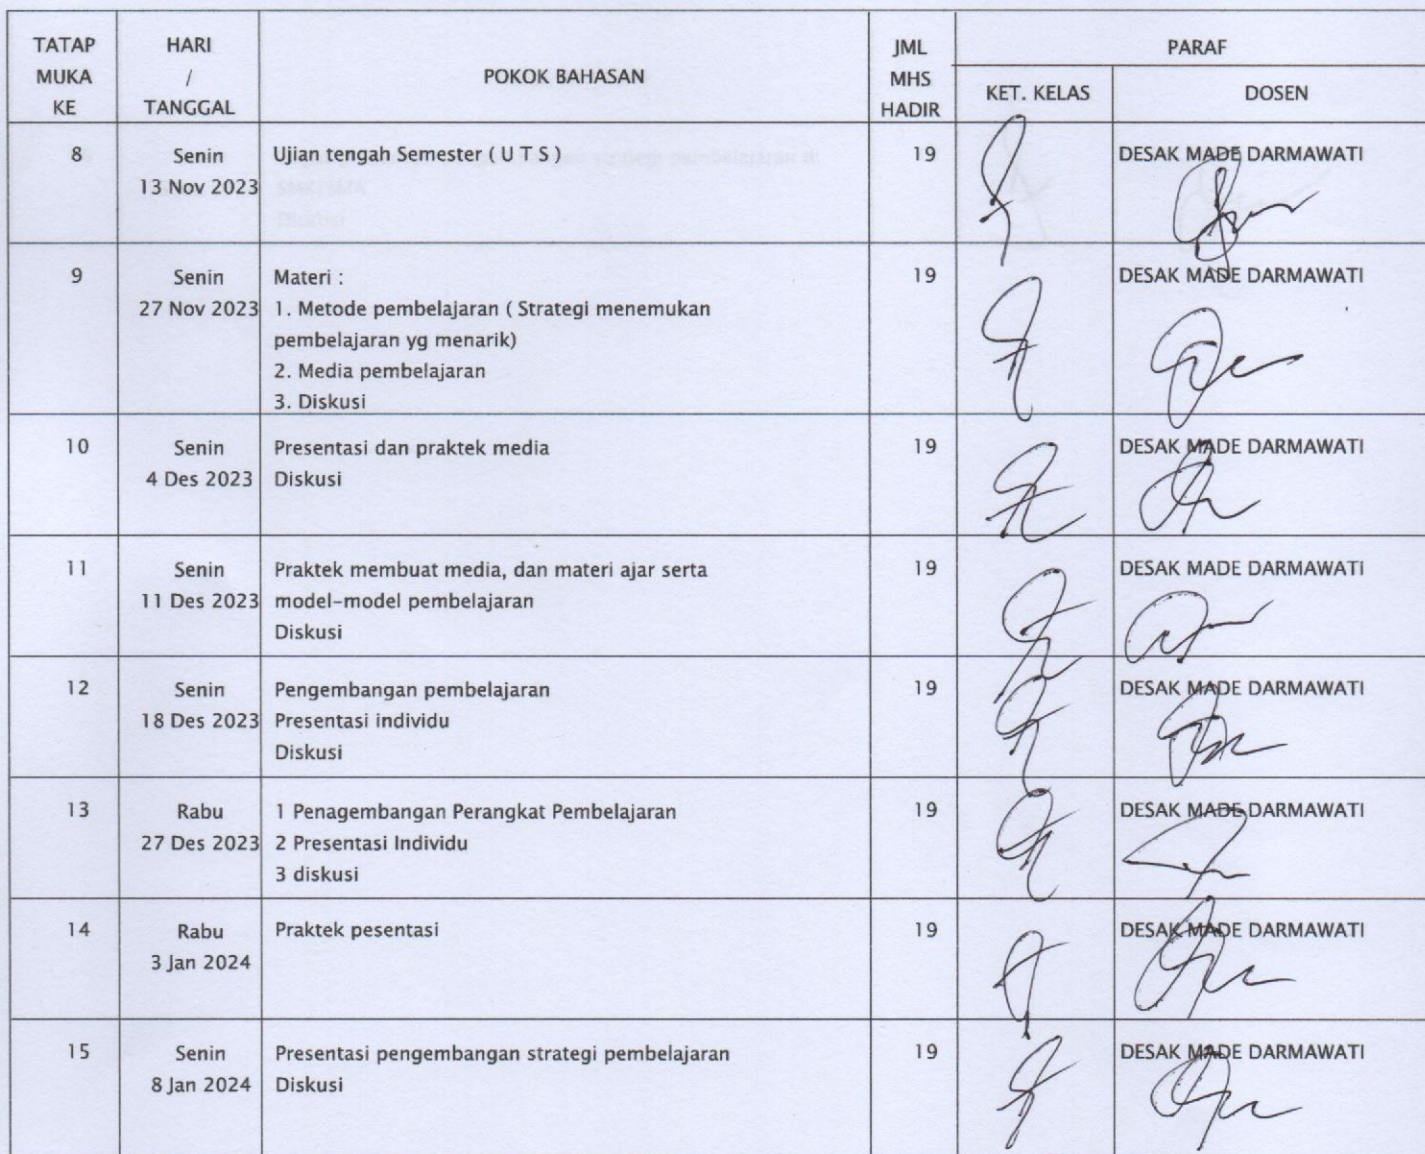 TATAP MUKA KE
HARI / TANGGAL
POKOK BAHASAN
JML MHS HADIR
PARAF
KET. KELAS
DOSEN
8
Senin
13 Nov 2023
Ujian tengah Semester ( U T S )
19
DESAK MADE DARMAWATI
9
Senin
27 Nov 2023
Materi :
1. Metode pembelajaran ( Strategi menemukan
pembelajaran yg menarik)
2. Media pembelajaran
3. Diskusi
19
DESAK MADE DARMAWATI
10
Senin
4 Des 2023
Presentasi dan praktek media
Diskusi
19
DESAK MADE DARMAWATI
11
Senin
11 Des 2023
Praktek membuat media, dan materi ajar serta
model-model pembelajaran
Diskusi
19
DESAK MADE DARMAWATI
12
Senin
18 Des 2023
Pengembangan pembelajaran
Presentasi individu
Diskusi
19
DESAK MADE DARMAWATI
13
Rabu
27 Des 2023
1 Penagembangan Perangkat Pembelajaran
2 Presentasi Individu
3 diskusi
19
DESAK MADE DARMAWATI
14
Rabu
3 Jan 2024
Praktek pesentasi
19
DESAK MADE DARMAWATI
15
Senin
8 Jan 2024
Presentasi pengembangan strategi pembelajaran
Diskusi
19
DESAK MADE DARMAWATI